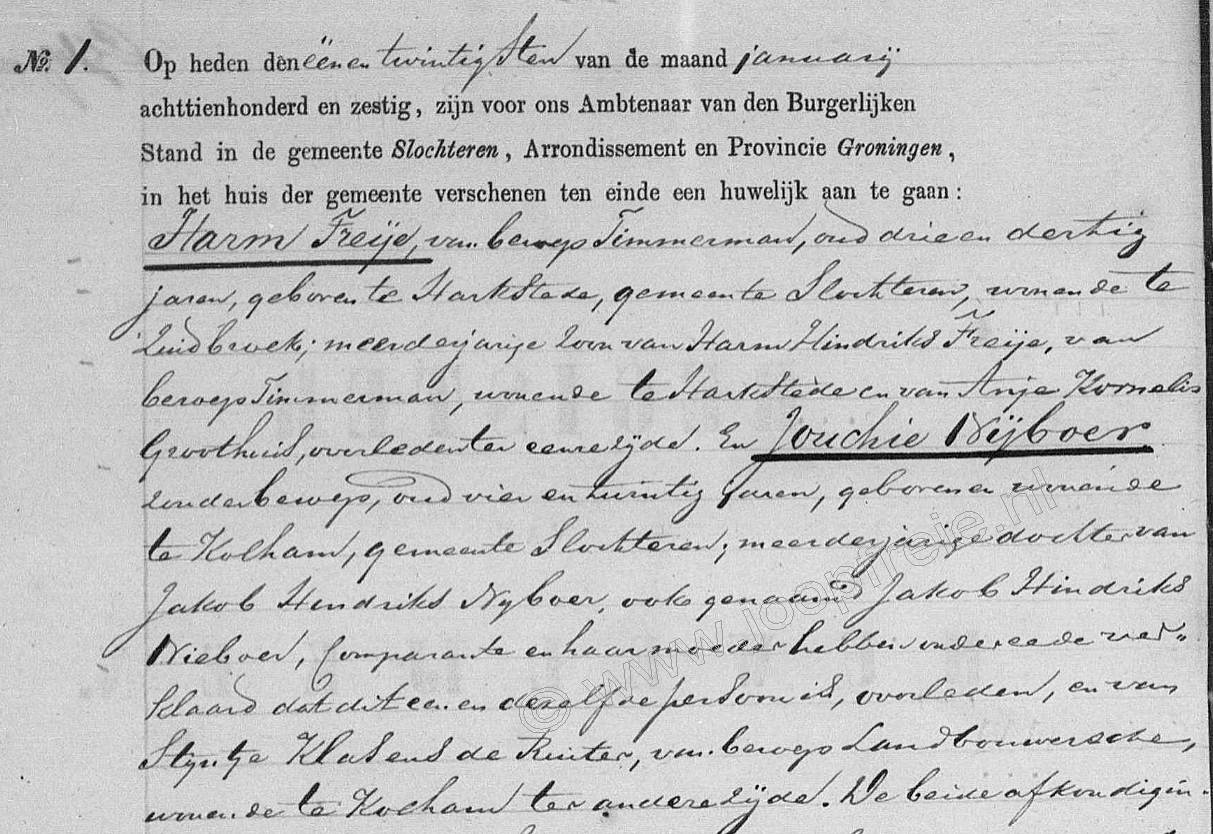 No. 1. Op heden den één en twintigsten van de maand januarij
achttienhonderd en zestig, zijn voor ons Ambtenaar van den Burgerlijken
Stand in de gemeente Slochteren, Arrondissement en Provincie Groningen,
in het huis der gemeente verschenen ten einde een huwelijk aan te gaan:
Harm Freije, van beroep Timmerman, oud drie en dertig
jaren, geboren te Harkstede, gemeente Slochteren, wonende te
Zuidbroek; meerderjarige zoon van Harm Hindriks Freije, van
beroep Timmerman, wonende te Harkstede en van Anje Kornelis
Groothuis, overleden ter eenre zijde. En Jouchie Nijboer
zonder beroep, oud vier en twintig jaren, geboren en wonende
te Kolham, gemeente Slochteren; meerderjarige dochter van
Jakob Hindriks Nyboer, ook genaamd Jakob Hindriks
Nieboer, Comparante en haar moeder hebben onder eede ver-
klaard dat dit een en dezelfde persoon is, overleden, en van
Styntje Klasens de Ruiter, van beroep Landbouwersche,
wonende te Kolham ter andere zijde. De beide afkondigin-
© www.joopfreije.nl